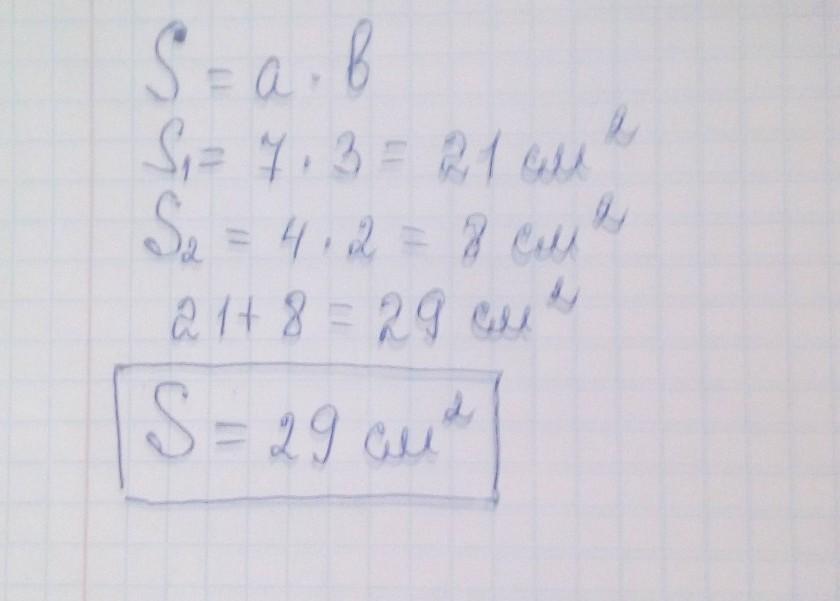 S = a · b
S₁ = 7 · 3 = 21 см²
S₂ = 4 · 2 = 8 см²
21 + 8 = 29 см²
S = 29 см²